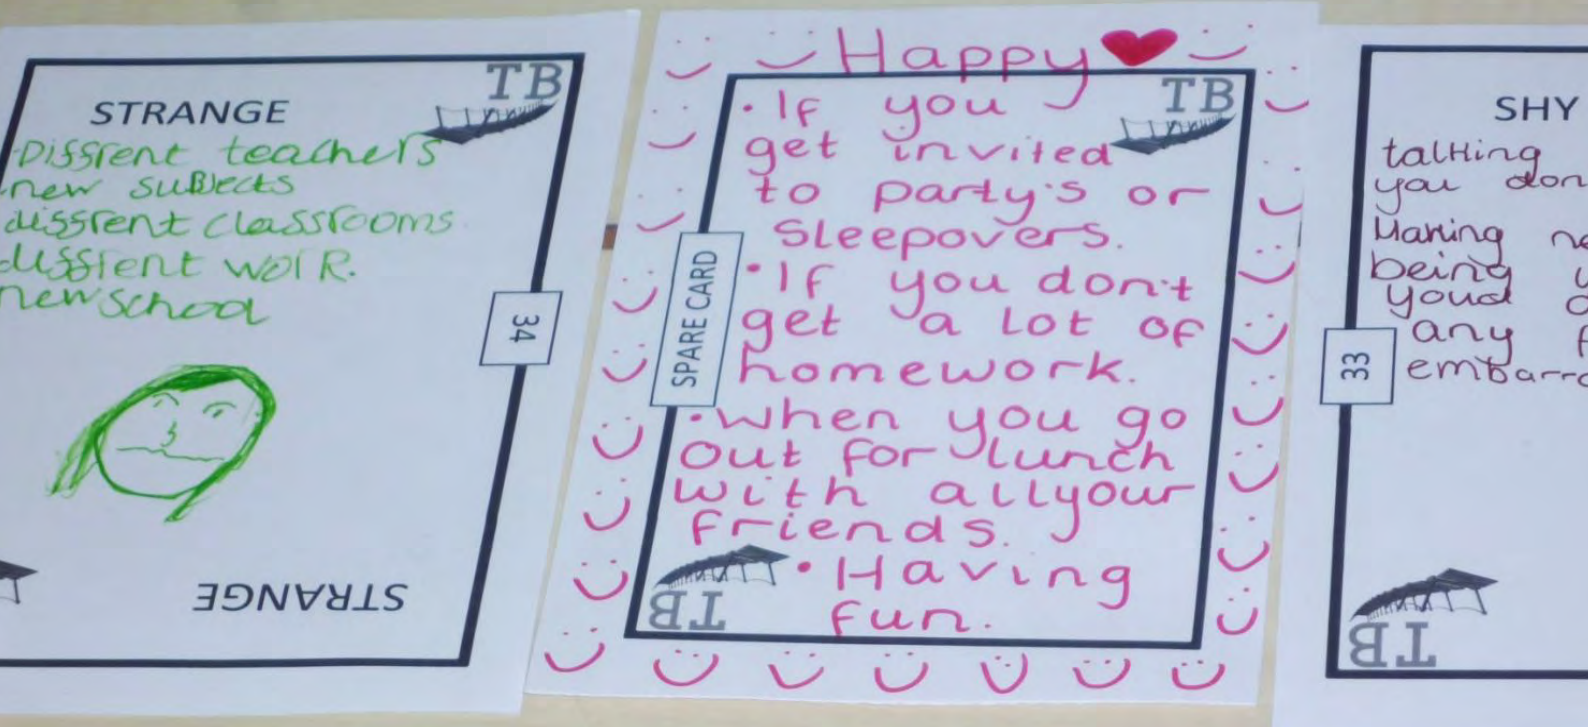 STRANGE
TB
Diffrent teachers
new suBJects
diffrent classrooms.
diffrent worR.
new school
34
STRANGE
Happy
TB
• If you
get invited
to party's or
sleepovers.
• If you don't
get a lot of
homework.
• when you go
out for lunch
with all your
friends.
• Having
fun.
SPARE CARD
TB
SHY
talking
you don
Making ne
being
any
embarra
33
TB